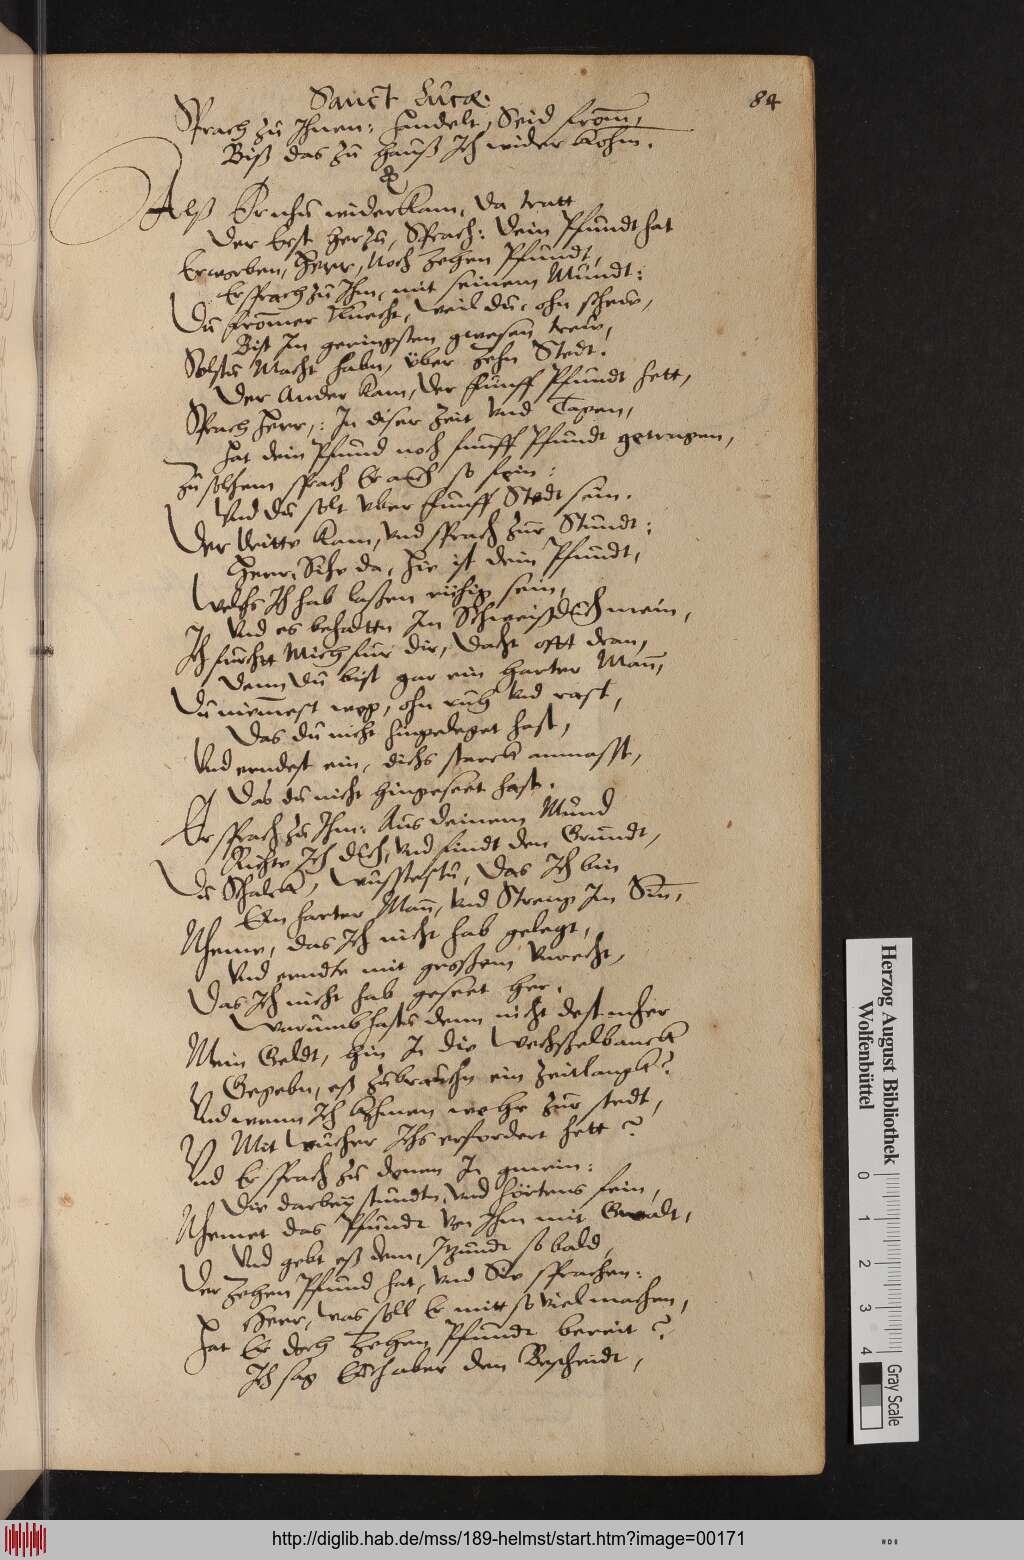 Sanct Lucæ. 84
Sprach zu Ihnen: handelt, Seid from̄,
Biß das zu hauß Ich wider kohm.
Alß Er nuhn widerkam, da tratt
Der Erst herzu, Sprach: dein Pfundt hat
Erworben, Herr, Noch zehen Pfundt,
Er sprach zu Ihm, mit seinem Mundt:
Du from̄er Knecht, weil du, ohn schew,
Bist In geringsten gwesen trew,
Solstu Macht habn, über zehn Stedt.
Der Ander kam, der fünff Pfundt hett,
Sprach Herr,: In diser Zeit und Tagen,
Hat dein Pfund noch fünff Pfundt getragen,
Zu solchem sprach Er auch so fein:
Und du solt uber fünff Stedt sein.
Der Dritte kam, und sprach zur Stundt:
Herr, Sihe da, hie ist dein Pfundt,
Welchs Ich hab laßen ruhig sein,
Und es behaltn Im Schweißduch mein,
Ich furcht Mich für dir, dacht offt dran,
Denn du bist gar ein harter Man̄,
Du nim̄est weg, ohn ruh und rast,
Das du nicht hingeleget hast,
Und erndest ein, dichs starck anmasst,
Das du nicht hingeseet hast.
Er sprach zu Ihm: Aus deinem Mund
Richte Ich dich, und findt den Grundt,
Du Schalck, wusstestu, das Ich bin
Ein harter Man̄, und Streng Im Sin̄,
Nheme, das Ich nicht hab gelegt,
Und erndte mit großem unrecht,
Das Ich nicht hab geseet her,
Warumb hastu denn nicht dest mher
Mein Geldt, hin In die Wechßelbanck
Gegebn, eß zubrauchn ein Zeitlangk?
Und wenn Ich khmen wehe zur stedt,
Mit Wucher Ichs erfordert hett?
Und Er sprach zu denen In gmein:
Die darbey stundtn, und hörtens fein,
Nhemet das Pfundt von Ihm mit Gwalt,
Und gebt eß dem, Itzundt so bald,
Der zehen Pfund hat, und Sie sprachen:
Herr, was soll Er mitt so viel machen,
Hat Er doch zehen Pfundt bereit?
Ich sag Euch aber den Bescheidt,
Herzog August Bibliothek
Wolfenbüttel
0 1 2 3 4
Gray Scale
http://diglib.hab.de/mss/189-helmst/start.htm?image=00171